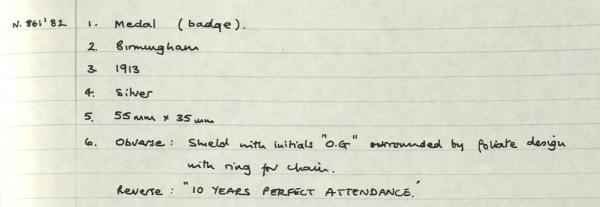 N. 861'82 1. Medal (badge).
2. Birmingham
3. 1913
4. Silver
5. 55mm x 35mm
6. Obverse: Shield with initials "O.G" surrounded by foliate design
with ring for chain.
Reverse: "10 YEARS PERFECT ATTENDANCE."